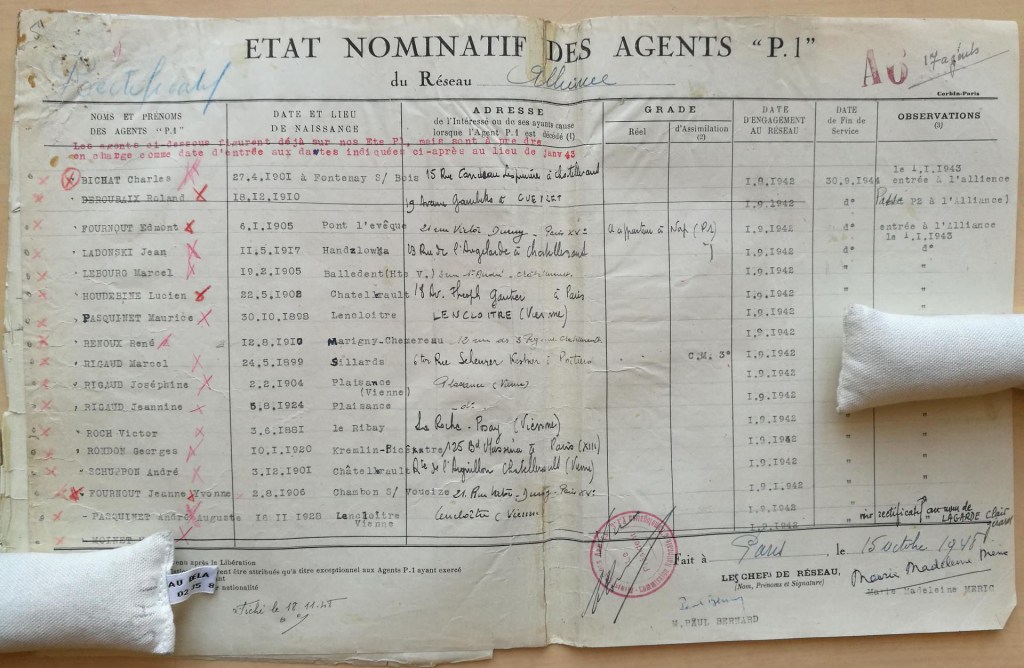 ETAT NOMINATIF DES AGENTS "P.1"
du Réseau Alliance
A6 17 agents
Corbin-Paris
Rectificatif
NOMS ET PRENOMS DES AGENTS "P.1" DATE ET LIEU DE NAISSANCE ADRESSE de l'Intéressé ou de ses ayants cause lorsque l'Agent P.1 est décédé (1) GRADE Réel d'Assimilation (2) DATE D'ENGAGEMENT AU RÉSEAU DATE de Fin de Service OBSERVATIONS (3)
Les agents ci-dessous figurent déjà sur nos Ets P1, mais sont à prendre
en change comme date d'entrée aux dates indiquées ci-après au lieu de janv 43
BICHAT Charles 27.4.1901 à Fontenay S/ Bois 15 Rue à Chatellerault I.9.1942 30.9.1944 le 1.I.1943 entrée à l'alliance
DEROUBAIX Roland 18.12.1910 19 Avenue Gambetta à I.9.1942 d° (Passé P2 à l'Alliance)
FOURNOUT Edmont 6.I.1905 Pont l'evêque 21 rue Victor Duruy - Paris XV° I.9.1942 d° entrée à l'Alliance le 1.I.1943
LADONSKI Jean II.5.1917 Handzlowka 13 Rue de l'Angelarde à Chatellerault I.9.1942 d° d°
LEBOURG Marcel 19.2.1905 Balledent(Hte V.) I.9.1942 " "
HOUDEBINE Lucien 22.5.1902 Chatellerault 18 Av. Théoph Gautier à Paris I.9.1942 " "
PASQUINET Maurice 30.10.1898 Lencloitre LENCLOITRE (Vienne) I.9.1942 "
RENOUX René 12.8.1910 Marigny-Chemereau I.9.1942 "
RIGAUD Marcel 24.5.1899 Sillards 6 ter Rue Scheurer Kestner à Poitiers C.M. 3° I.9.1942
RIGAUD Joséphine 2.2.1904 Plaisance (Vienne) Plaisance (Vienne) I.9.1942
RIGAUD Jeannine 5.8.1924 Plaisance - d° - I.9.1942 "
ROCH Victor 3.6.1881 le Ribay La Roche-Posay (Vienne) I.9.1942 " "
RONDON Georges 10.1.1920 Kremlin-Bicêtre 125 Bd Masséna à Paris (XIII) I.9.1942 " "
SCHUPPON André 3.12.1901 Châtellrault Rte de l'Aiguillon Chatellerault (Vienne) I.9.1942 " "
FOURNOUT Jeanne Yvonne 2.8.1906 Chambon S/ Voueize 21 Rue Victor-Duruy - Paris XV° I.9.1942 " "
PASQUINET André Auguste 16 II 1928 Lencloître Vienne Lencloître (Vienne) I.9.1942 "
voir rectificatif au nom de LAGARDE Clair
MOINET I.9.1942
ens après la Libération
ent être attribués qu'à titre exceptionnel aux Agents P.1 ayant exercé
nationalité
Fait à Paris, le 15 octobre 1945
LES CHEFS DE RÉSEAU,
(Nom, Prénoms et Signature)
Marie Madeleine Méric
Marie Madeleine MERIC
M. PAUL BERNARD
fiché le 18.11.45